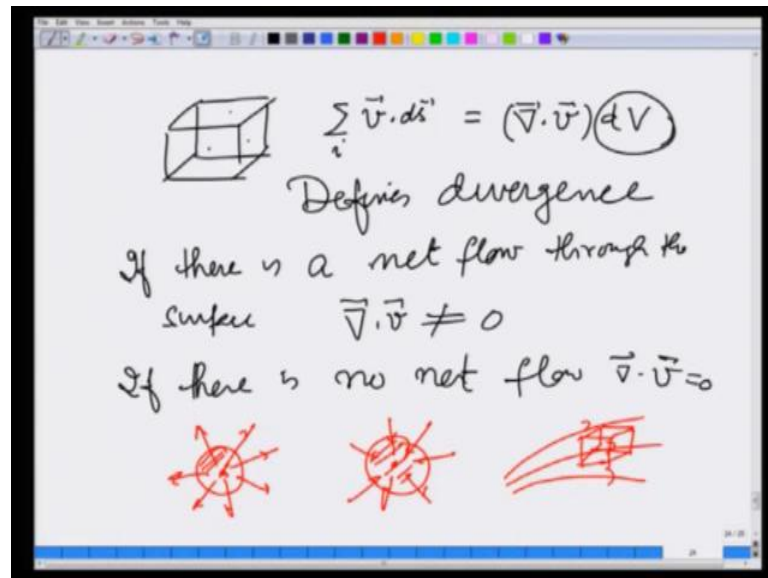 File Edit View Insert Actions Tools Help
∑ᵢ v⃗.ds⃗ = (∇⃗.v⃗) dV
Defines divergence
If there is a net flow through the
surface ∇⃗.v⃗ ≠ 0
If there is no net flow ∇⃗.v⃗ = 0